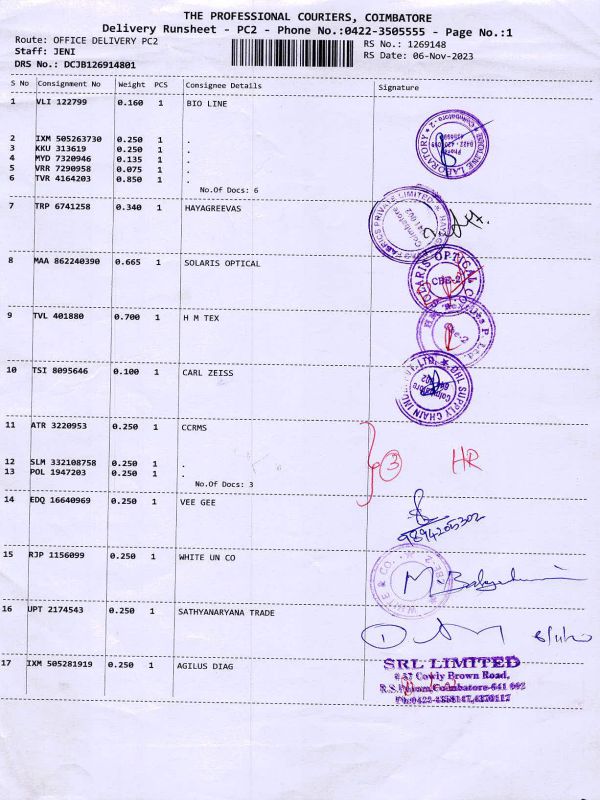 THE PROFESSIONAL COURIERS, COIMBATORE
Delivery Runsheet - PC2 - Phone No.:0422-3505555 - Page No.:1
Route: OFFICE DELIVERY PC2 RS No.: 1269148
Staff: JENI RS Date: 06-Nov-2023
DRS No.: DCJB126914801
S No Consignment No Weight PCS Consignee Details Signature
1 VLI 122799 0.160 1 BIO LINE
2 IXM 505263730 0.250 1 .
3 KKU 313619 0.250 1 .
4 MYD 7320946 0.135 1 .
5 VRR 7290958 0.075 1 .
6 TVR 4164203 0.850 1 .
No.Of Docs: 6
7 TRP 6741258 0.340 1 HAYAGREEVAS
FABRICS PRIVATE LIMITED
Coimbatore
641 002
8 MAA 862240390 0.665 1 SOLARIS OPTICAL
SOLARIS OPTICAL CO
CBE-2
9 TVL 401880 0.700 1 H M TEX
10 TSI 8095646 0.100 1 CARL ZEISS
DHL SUPPLY CHAIN
Coimbatore
11 ATR 3220953 0.250 1 CCRMS
12 SLM 332108758 0.250 1 .
13 POL 1947203 0.250 1 .
No.Of Docs: 3
3 HR
14 EDQ 16640969 0.250 1 VEE GEE
9894205302
15 RJP 1156099 0.250 1 WHITE UN CO
16 UPT 2174543 0.250 1 SATHYANARYANA TRADE
17 IXM 505281919 0.250 1 AGILUS DIAG
SRL LIMITED
# 37 Cowly Brown Road,
R.S.Puram, Coimbatore-641 002